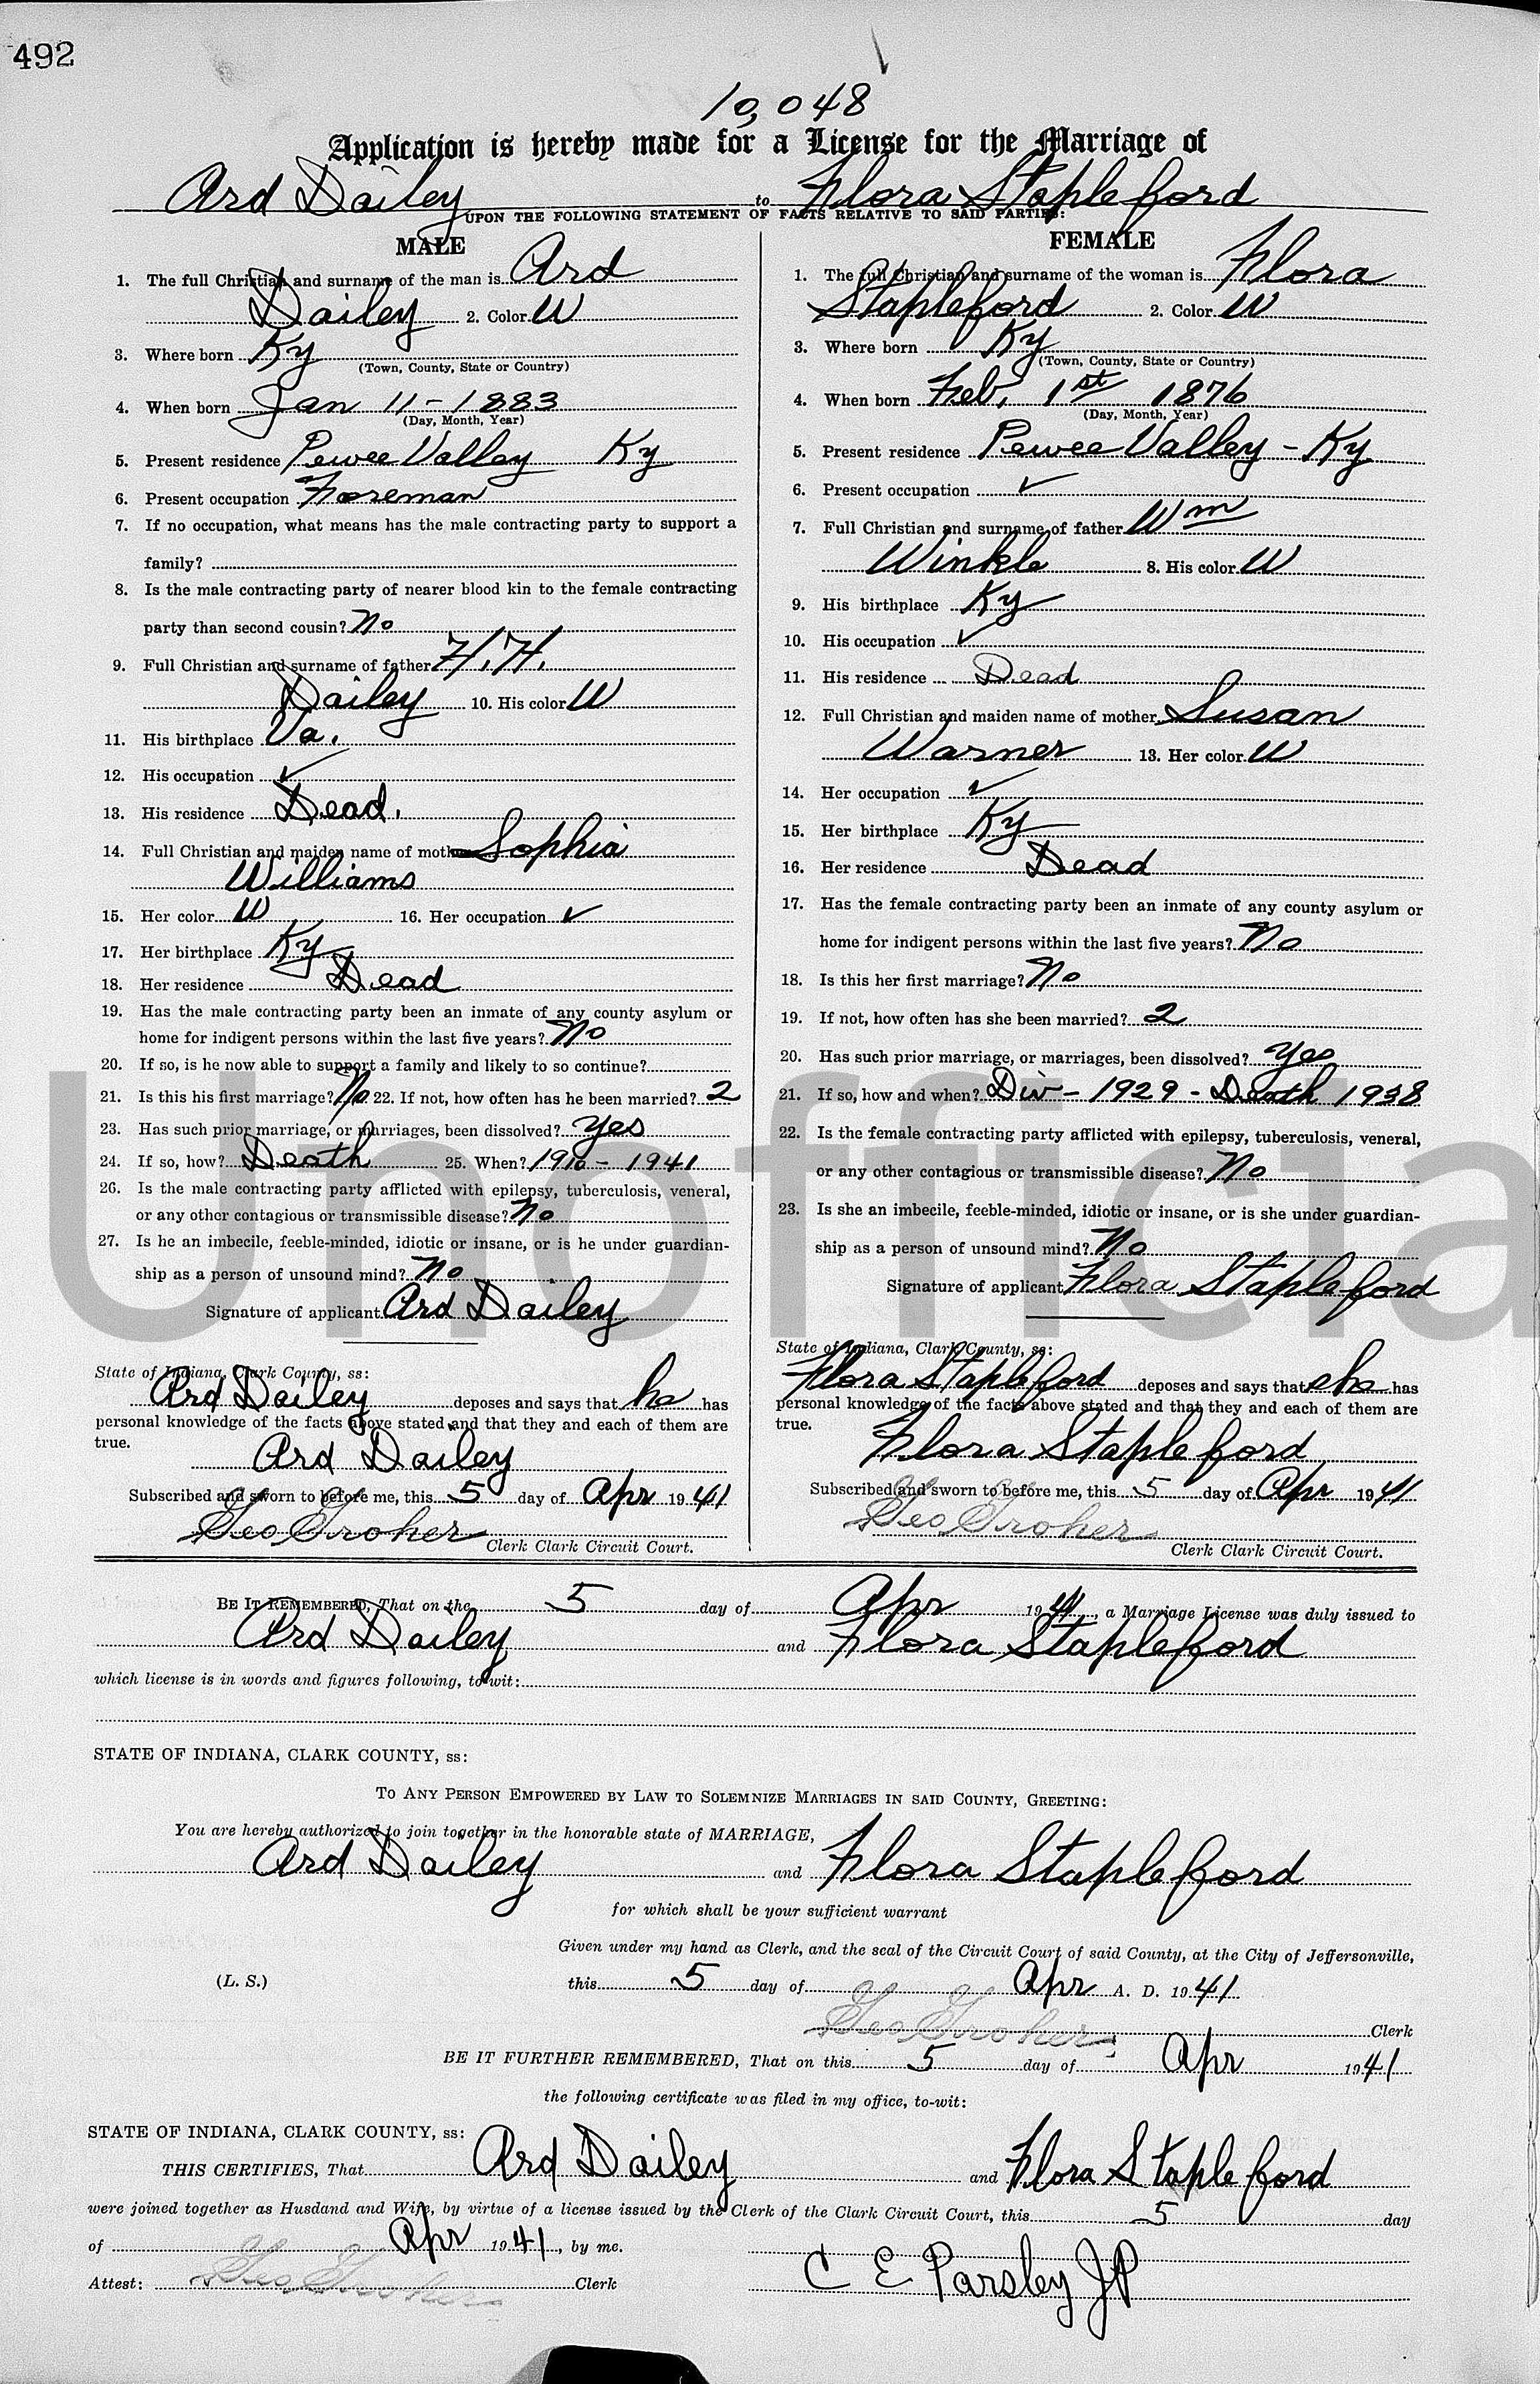 492
10,048
Application is hereby made for a License for the Marriage of
Ard Dailey to Flora Stapleford
UPON THE FOLLOWING STATEMENT OF FACTS RELATIVE TO SAID PARTIES:
MALE
1. The full Christian and surname of the man is Ard
Dailey 2. Color W
3. Where born Ky
(Town, County, State or Country)
4. When born Jan 11 - 1883
(Day, Month, Year)
5. Present residence Pewee Valley Ky
6. Present occupation Foreman
7. If no occupation, what means has the male contracting party to support a
family?
8. Is the male contracting party of nearer blood kin to the female contracting
party than second cousin? No
9. Full Christian and surname of father H. H.
Dailey 10. His color W
11. His birthplace Va.
12. His occupation ✓
13. His residence Dead.
14. Full Christian and maiden name of mother Sophia
Williams
15. Her color W 16. Her occupation ✓
17. Her birthplace Ky
18. Her residence Dead
19. Has the male contracting party been an inmate of any county asylum or
home for indigent persons within the last five years? No
20. If so, is he now able to support a family and likely to so continue?
21. Is this his first marriage? No 22. If not, how often has he been married? 2
23. Has such prior marriage, or marriages, been dissolved? Yes
24. If so, how? Death 25. When? - 1941
26. Is the male contracting party afflicted with epilepsy, tuberculosis, veneral,
or any other contagious or transmissible disease? No
27. Is he an imbecile, feeble-minded, idiotic or insane, or is he under guardian-
ship as a person of unsound mind? No
Signature of applicant Ard Dailey
State of Indiana, Clark County, ss:
Ard Dailey deposes and says that he has
personal knowledge of the facts above stated and that they and each of them are
true.
Ard Dailey
Subscribed and sworn to before me, this 5 day of Apr 1941
Geo Groher
Clerk Clark Circuit Court.
FEMALE
1. The full Christian and surname of the woman is Flora
Stapleford 2. Color W
3. Where born Ky
(Town, County, State or Country)
4. When born Feb, 1st 1876
(Day, Month, Year)
5. Present residence Pewee Valley - Ky
6. Present occupation ✓
7. Full Christian and surname of father Wm
Winkle 8. His color W
9. His birthplace Ky
10. His occupation ✓
11. His residence Dead
12. Full Christian and maiden name of mother Susan
Warner 13. Her color W
14. Her occupation ✓
15. Her birthplace Ky
16. Her residence Dead
17. Has the female contracting party been an inmate of any county asylum or
home for indigent persons within the last five years? No
18. Is this her first marriage? No
19. If not, how often has she been married? 2
20. Has such prior marriage, or marriages, been dissolved? Yes
21. If so, how and when? Div - 1929 - Death 1938
22. Is the female contracting party afflicted with epilepsy, tuberculosis, veneral,
or any other contagious or transmissible disease? No
23. Is she an imbecile, feeble-minded, idiotic or insane, or is she under guardian-
ship as a person of unsound mind? No
Signature of applicant Flora Stapleford
State of Indiana, Clark County, ss:
Flora Stapleford deposes and says that she has
personal knowledge of the facts above stated and that they and each of them are
true.
Flora Stapleford
Subscribed and sworn to before me, this 5 day of Apr 1941
Geo Groher
Clerk Clark Circuit Court.
BE IT REMEMBERED, That on the 5 day of Apr 1941, a Marriage License was duly issued to
Ard Dailey and Flora Stapleford
which license is in words and figures following, to wit:
STATE OF INDIANA, CLARK COUNTY, ss:
TO ANY PERSON EMPOWERED BY LAW TO SOLEMNIZE MARRIAGES IN SAID COUNTY, GREETING:
You are hereby authorized to join together in the honorable state of MARRIAGE,
Ard Dailey and Flora Stapleford
for which shall be your sufficient warrant
Given under my hand as Clerk, and the seal of the Circuit Court of said County, at the City of Jeffersonville,
(L. S.) this 5 day of Apr A. D. 1941
Geo Groher Clerk
BE IT FURTHER REMEMBERED, That on this 5 day of Apr 1941
the following certificate was filed in my office, to-wit:
STATE OF INDIANA, CLARK COUNTY, ss:
THIS CERTIFIES, That Ard Dailey and Flora Stapleford
were joined together as Husdand and Wife, by virtue of a license issued by the Clerk of the Clark Circuit Court, this 5 day
of Apr 1941, by me.
C E Parsley JP
Attest: Geo Groher Clerk
Unofficia